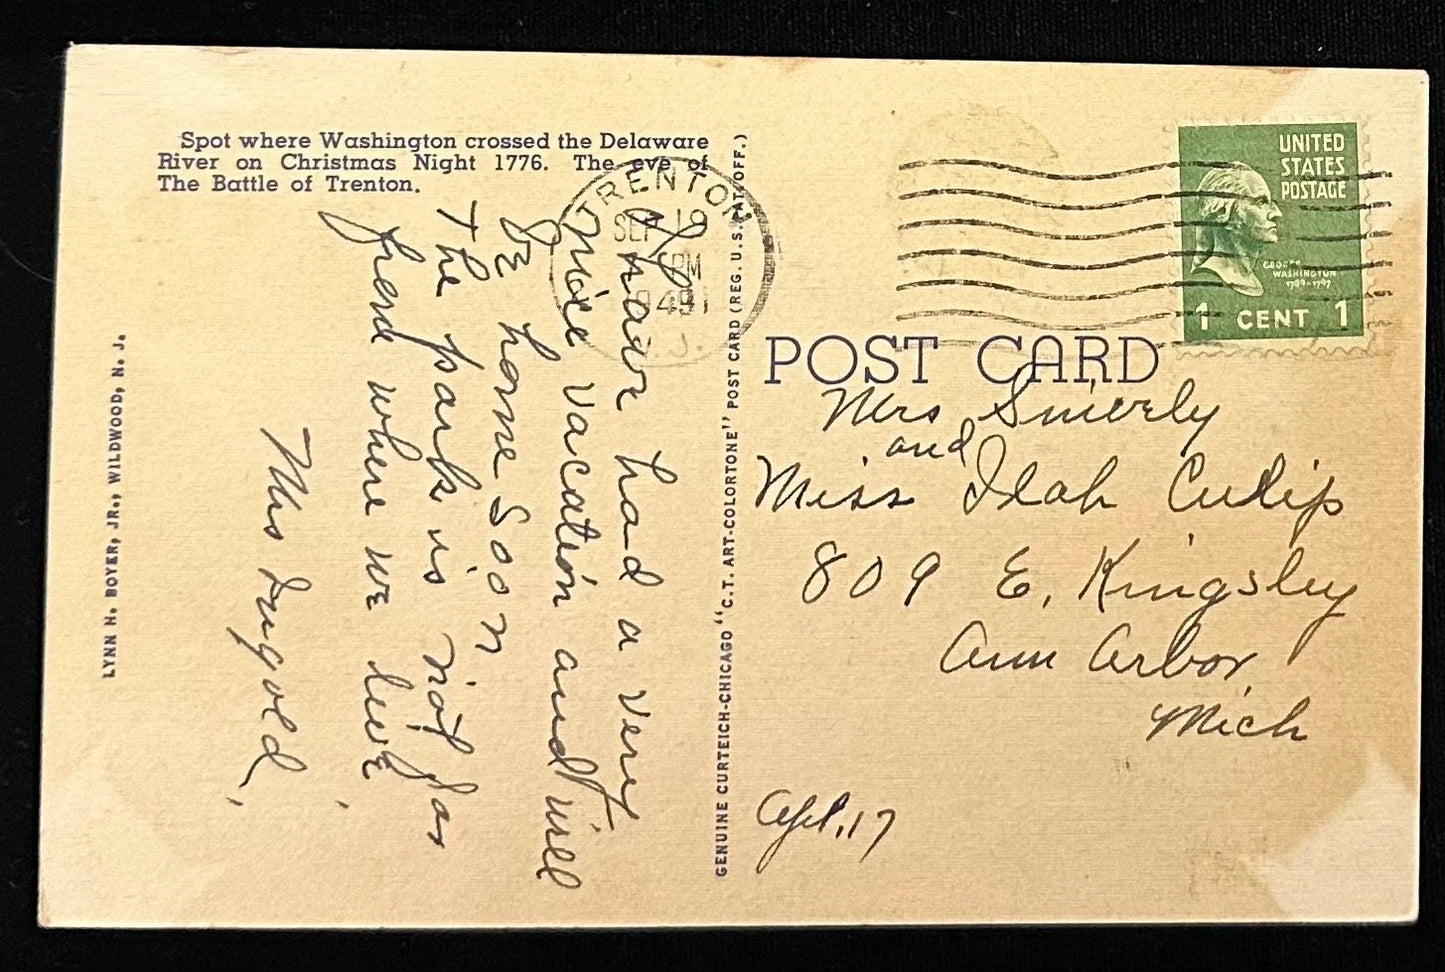 Spot where Washington crossed the Delaware
River on Christmas Night 1776. The eve of
The Battle of Trenton.
LYNN H. BOYER, JR., WILDWOOD, N. J.
have had a very
nice vacation and will
be home soon
The park is not far
from where we live
Mrs Dugold.
GENUINE CURTEICH-CHICAGO "C.T. ART-COLORTONE" POST CARD (REG. U.S. PAT. OFF.)
TRENTON
SEP 19
PM
1949
N.J.
UNITED
STATES
POSTAGE
GEORGE
WASHINGTON
1789-1797
1 CENT 1
POST CARD
Mrs Smierly
and
Miss Ilah Culip
809 E. Kingsley
Ann Arbor
Mich
Apt. 17